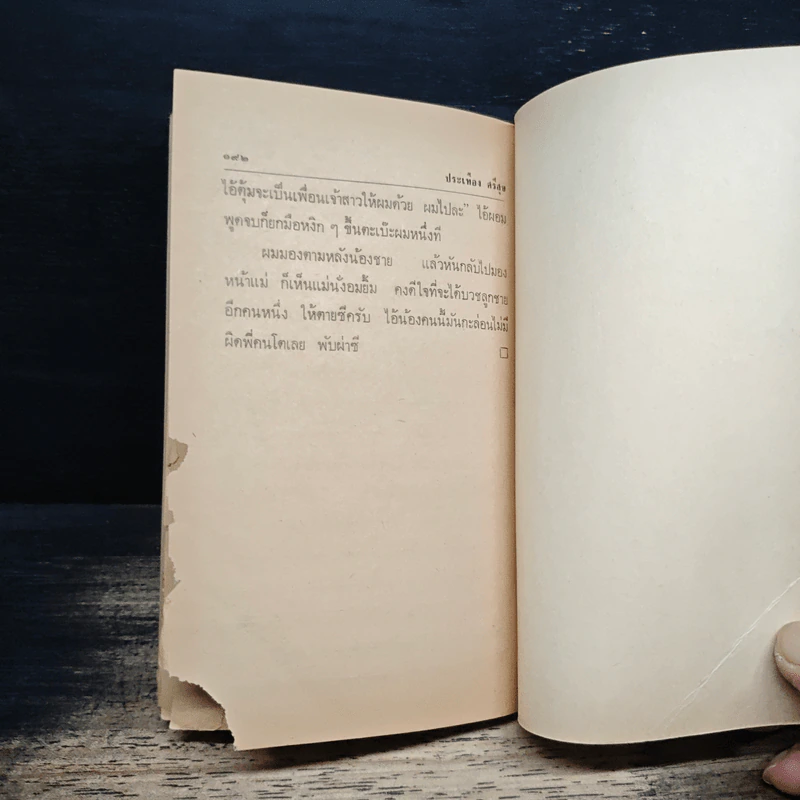 ๑๙๒
ประเทือง ศรีสุข
ไอ้ตุ้มจะเป็นเพื่อนเจ้าสาวให้ผมด้วย ผมไปละ” ไอ้ผอม
พูดจบก็ยกมือหงิก ๆ ขึ้นตะเบ๊ะผมหนึ่งที
ผมมองตามหลังน้องชาย แล้วหันกลับไปมอง
หน้าแม่ ก็เห็นแม่นั่งอมยิ้ม คงดีใจที่จะได้บวชลูกชาย
อีกคนหนึ่ง ให้ตายซีครับ ไอ้น้องคนนี้มันกะล่อนไม่มี
ผิดพี่คนโตเลย พับผ่าซี